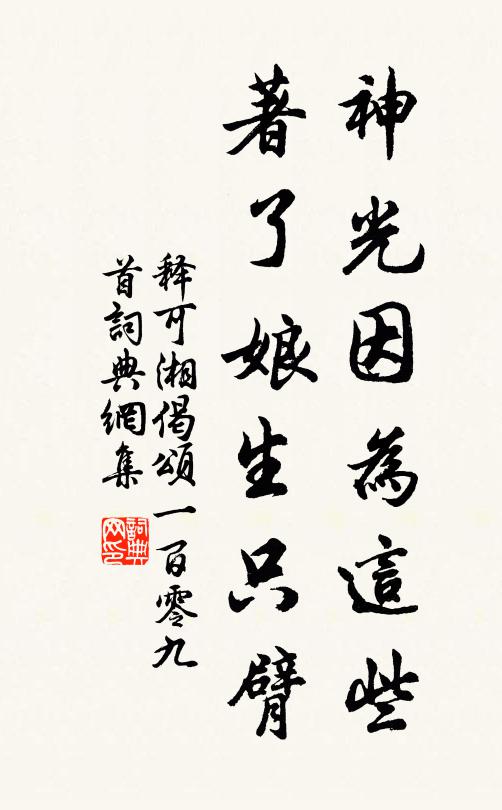 神光因為這些
著了娘生只臂
釋可湘偈頌一百零九
首詞典網集
詞典网印